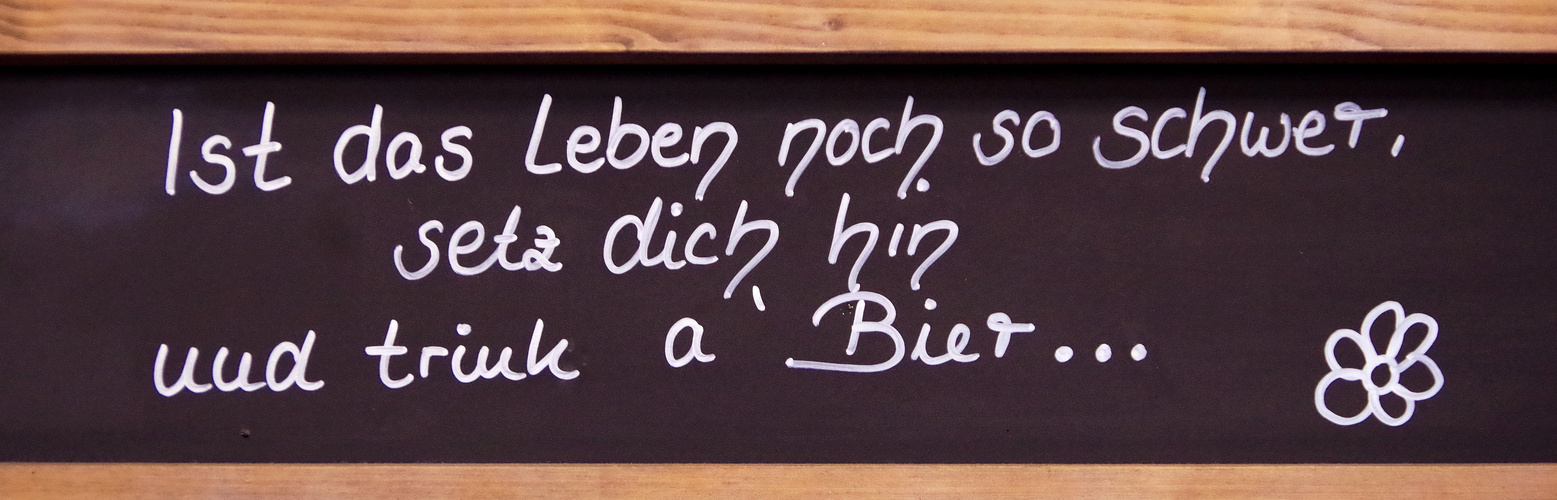 Ist das Leben noch so schwer,
setz dich hin
und trink a' Bier...